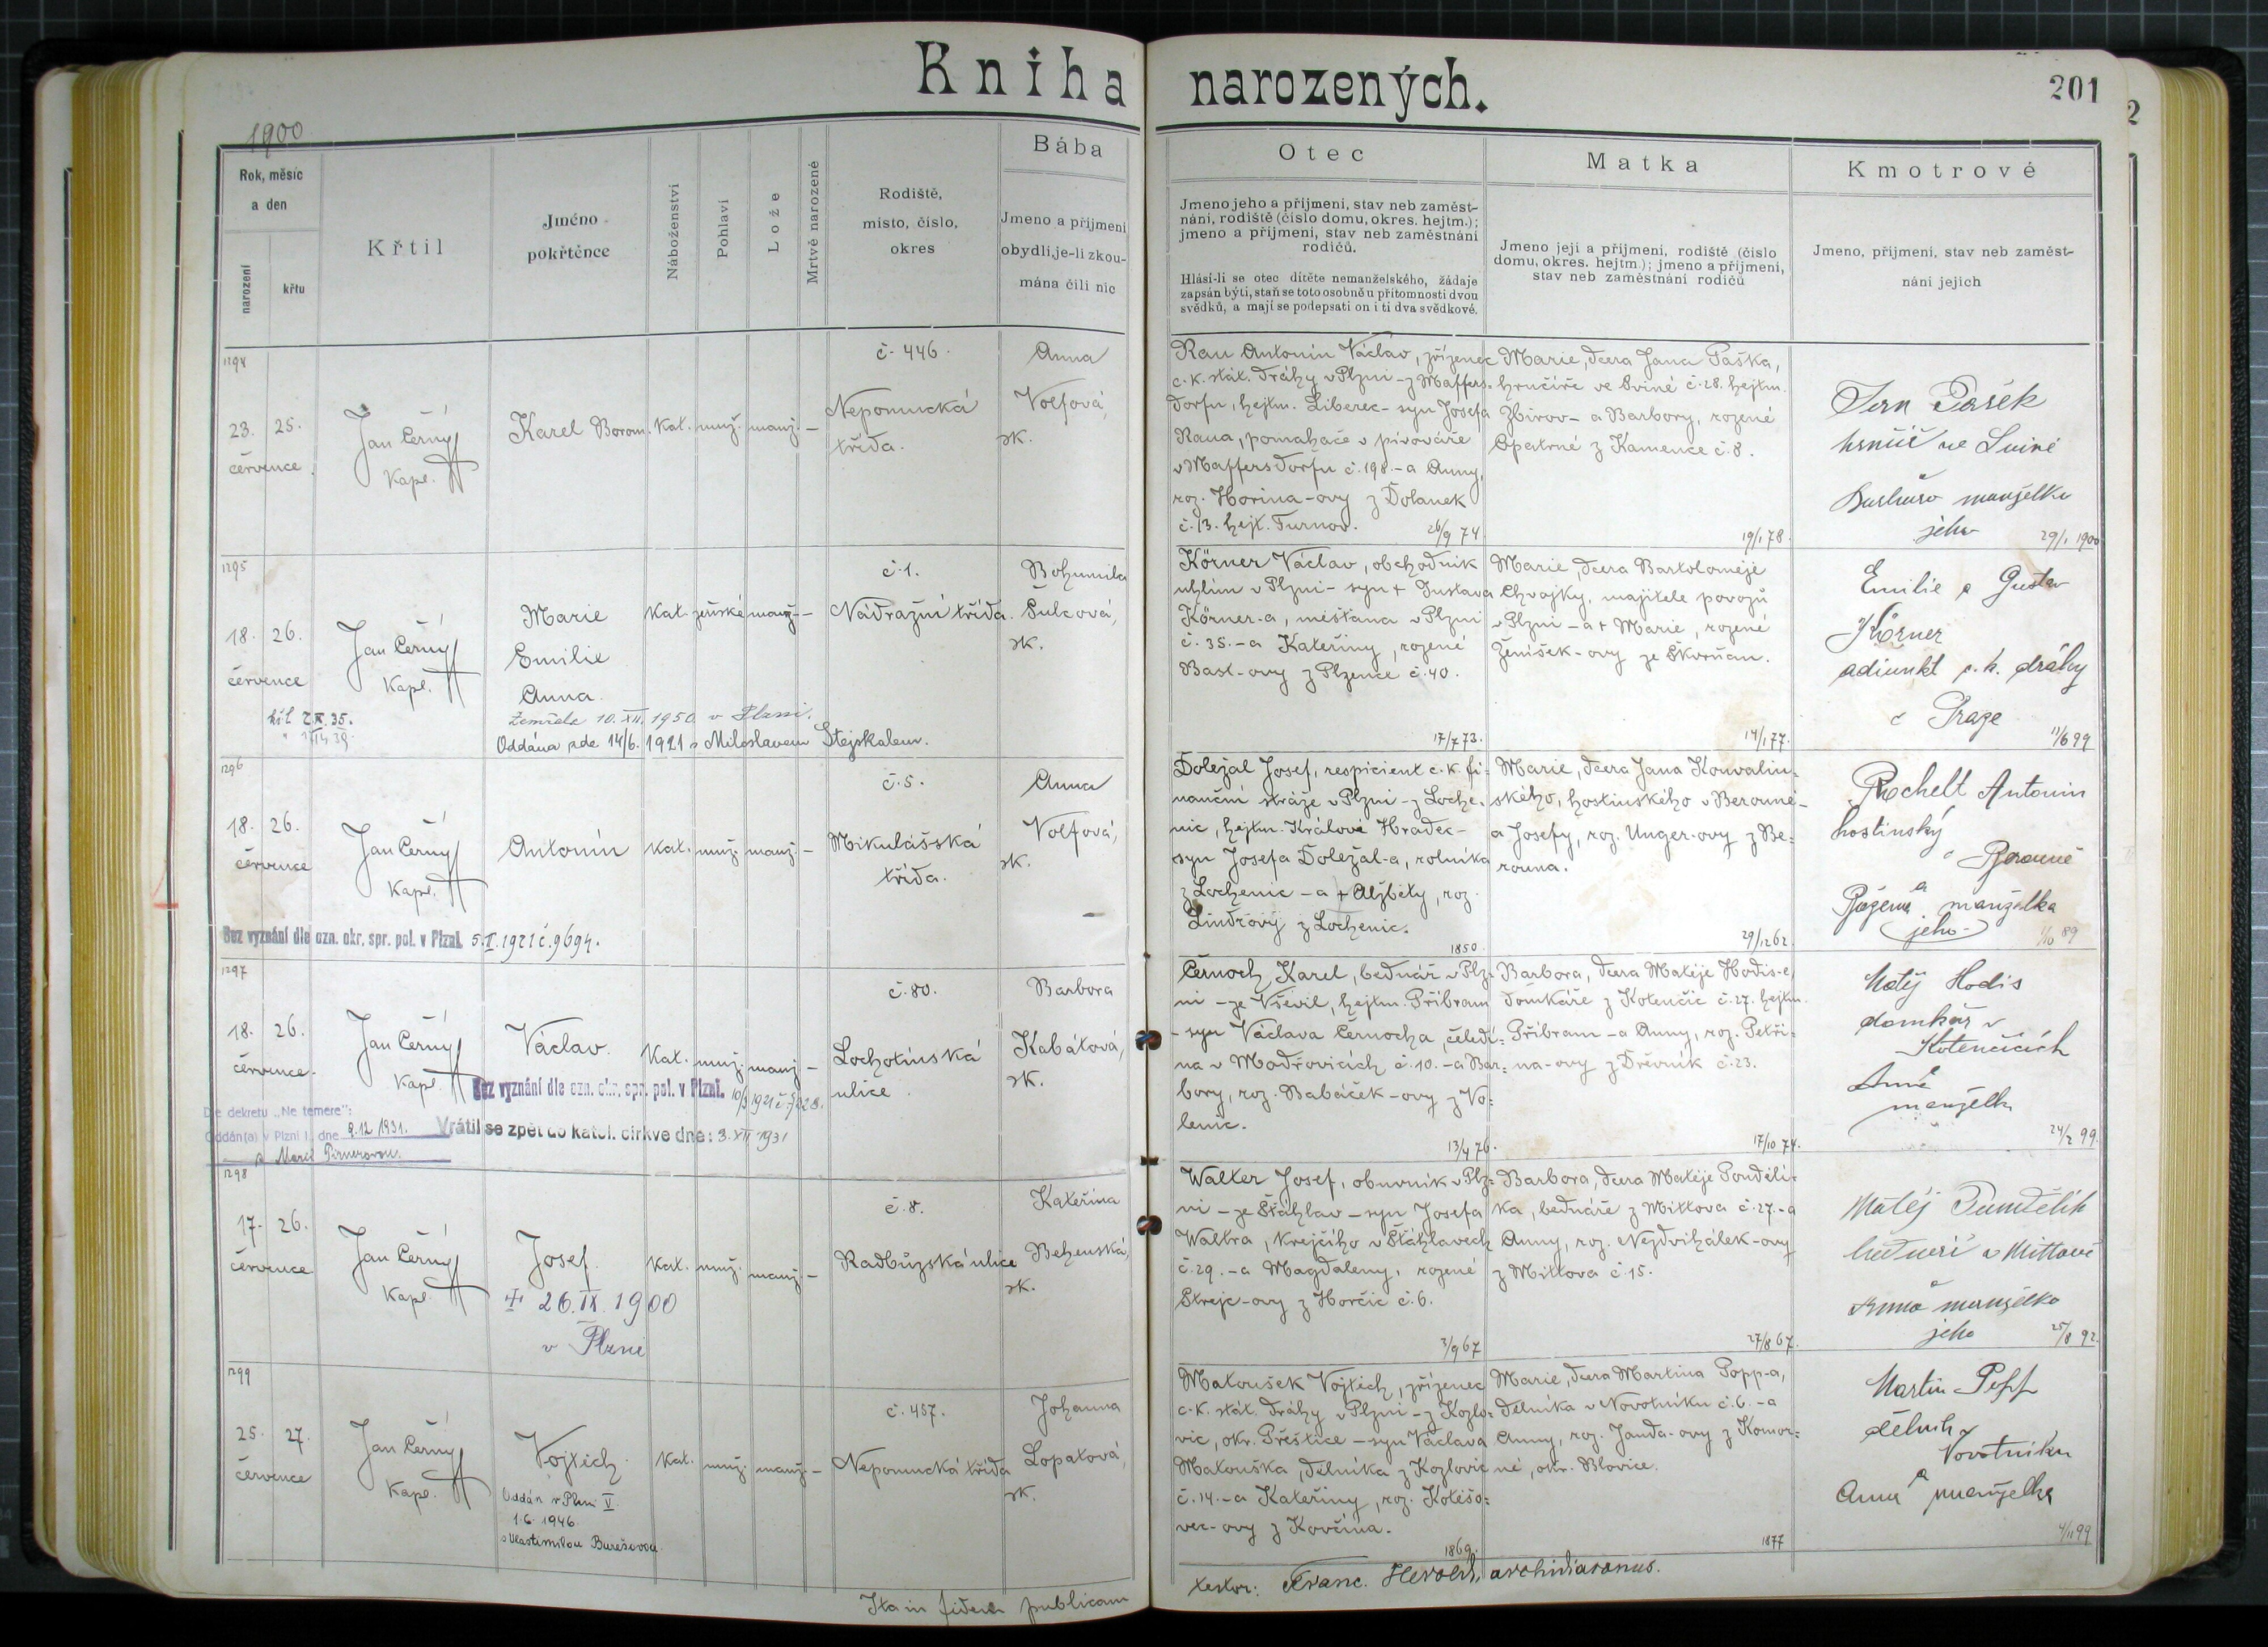 Kniha narozených.
201
2
1900
Rok, měsíc
a den
narození
křtu
Křtil
Jméno
pokřtěnce
Náboženství
Pohlaví
Lože
Mrtvě narozené
Rodiště,
místo, číslo,
okres
Bába
Jmeno a příjmení
obydlí, je-li zkou-
mána čili nic
Otec
Jmeno jeho a příjmení, stav neb zaměst-
nání, rodiště (číslo domu, okres. hejtm.);
jmeno a příjmení, stav neb zaměstnání
rodičů.
Hlásí-li se otec dítěte nemanželského, žádaje
zapsán býti, staň se toto osobně u přítomnosti dvou
svědků, a mají se podepsati on i ti dva svědkové.
Matka
Jmeno její a příjmení, rodiště (číslo
domu, okres. hejtm.); jmeno a příjmení,
stav neb zaměstnání rodičů
Kmotrové
Jmeno, příjmení, stav neb zaměst-
nání jejich
1294
23. 25.
července
Jan Černý
Kapl.
Karel Borom.
Kat. muž. manž. –
č. 446.
Nepomucká
třída.
Anna
Volfová,
zk.
Rau Antonín Václav, zřízenec
c. k. stát. dráhy v Plzni - z Maffers-
dorfu, hejtm. Liberec - syn Josefa
Raua, pomahače v pivováře
v Maffersdorfu č. 198. - a Anny,
roz. Horina-ovy z Dolanek
č. 13. hejt. Turnov.
26/9 74
Marie, dcera Jana Paška,
hrnčíře ve Sviné č. 28. hejtm.
Zbirov - a Barbory, rozené
Opatrné z Kamence č. 8.
19/1 78.
Jan Pašek
hrnčíř ve Sviné
Barbora manželka
jeho
29/1 1900
1295
18. 26.
července
Jan Černý
Kapl.
Marie
Emilie
Anna.
Zemřela 10. XII. 1950 v Plzni.
Oddána zde 14/6. 1921 s Miloslavem Stejskalem.
Kat. ženské manž. –
č. 1.
Nádražní třída.
Bohumila
Šulcová,
zk.
Körner Václav, obchodník
uhlím v Plzni - syn + Gustava
Körner-a, měšťana v Plzni
č. 35. - a Kateřiny, rozené
Bast-ovy z Plzence č. 40.
17/7 73.
Marie, dcera Bartoloměje
Chvojky, majitele povozů
v Plzni - a + Marie, rozené
Ženíšek-ovy ze Skvrňan.
14/1 77.
Emilie a Gustav
Körner
adjunkt c. k. dráhy
v Praze
11/6 99
1296
18. 26.
července
Jan Černý
Kapl.
Antonín
Kat. muž. manž. –
č. 5.
Mikulášská
třída.
Anna
Volfová,
zk.
Bez vyznání dle ozn. okr. spr. pol. v Plzni. 5. I. 1921 č. 9694.
Doležal Josef, respicient c. k. fi-
nanční stráže v Plzni - z Loche-
nic, hejtm. Králové Hradec -
syn Josefa Doležal-a, rolníka
z Lochenic - a + Alžběty, roz.
Lindrovy z Lochenic.
1850.
Marie, dcera Jana Konvalin-
ského, hostinského v Berouně -
a Josefy, roz. Unger-ovy z Be-
rouna.
29/12 62.
Rochelt Antonín
hostinský
v Berouně
a
Božena manželka
jeho
1/10 89
1297
18. 26.
července.
Jan Černý
Kapl.
Václav.
Kat. muž. manž. –
č. 80.
Lochotínská
ulice
Barbora
Kabátová,
zk.
Bez vyznání dle ozn. okr. spr. pol. v Plzni.
Dle dekretu „Ne temere":
Oddán(a) v Plzni I., dne 9. 12. 1931.
s Marií Pirnerovou.
Vrátil se zpět do katol. církve dne: 3. XII 1931
Černoch Karel, bednář v Plz-
ni - ze Vševil, hejtm. Příbram
- syn Václava Černocha, čeledí-
na v Modřovicích č. 10. - a Bar-
bory, roz. Babáček-ovy z Vo-
lenic.
13/4 76.
Barbora, dcera Matěje Hodis-e,
domkáře z Kotenčic č. 27. hejtm.
Příbram - a Anny, roz. Petři-
na-ovy z Dřevník č. 23.
17/10 74.
Matěj Hodis
domkář v
Kotenčicích
a
Anna
manželka
24/2 99.
1298
17. 26.
července
Jan Černý
Kapl.
Josef.
+ 26. IX. 1900
v Plzni
Kat. muž. manž. –
č. 8.
Radbuzská ulice
Kateřina
Behenská,
zk.
Walter Josef, obuvník v Plz-
ni - ze Šťáhlav - syn Josefa
Waltra, krejčího v Šťáhlavech
č. 29. - a Magdaleny, rozené
Strejc-ovy z Horčic č. 6.
3/9 67
Barbora, dcera Matěje Ponděli-
ka, bednáře z Mittova č. 27. - a
Anny, roz. Nezdvihálek-ovy
z Mittova č. 15.
27/8 67.
Matěj Pundělík
v Mittově
a
Anna manželka
jeho
25/8 92.
1299
25. 27.
července
Jan Černý
Kapl.
Vojtěch.
Oddán v Plzni V.
1. 6. 1946.
s Vlastimilou Burešovou.
Kat. muž. manž. –
č. 457.
Nepomucká třída
Johanna
Lopatová,
zk.
Matoušek Vojtěch, zřízenec
c. k. stát. dráhy v Plzni - z Kozlo-
vic, okr. Přeštice - syn Václava
Matouška, dělníka z Kozlovic
č. 14. - a Kateřiny, roz. Kotěšo-
vec-ovy z Kovčína.
1869.
Marie, dcera Martina Popp-a,
dělníka v Novotníku č. 6. - a
Anny, roz. Janda-ovy z Komor-
né, okr. Blovice.
1877
Martin Popp
dělník v
Novotníku
a
Anna manželka
4/11 99
Ita in fidem publicam
testor: Franc. Herold, archidiaconus.